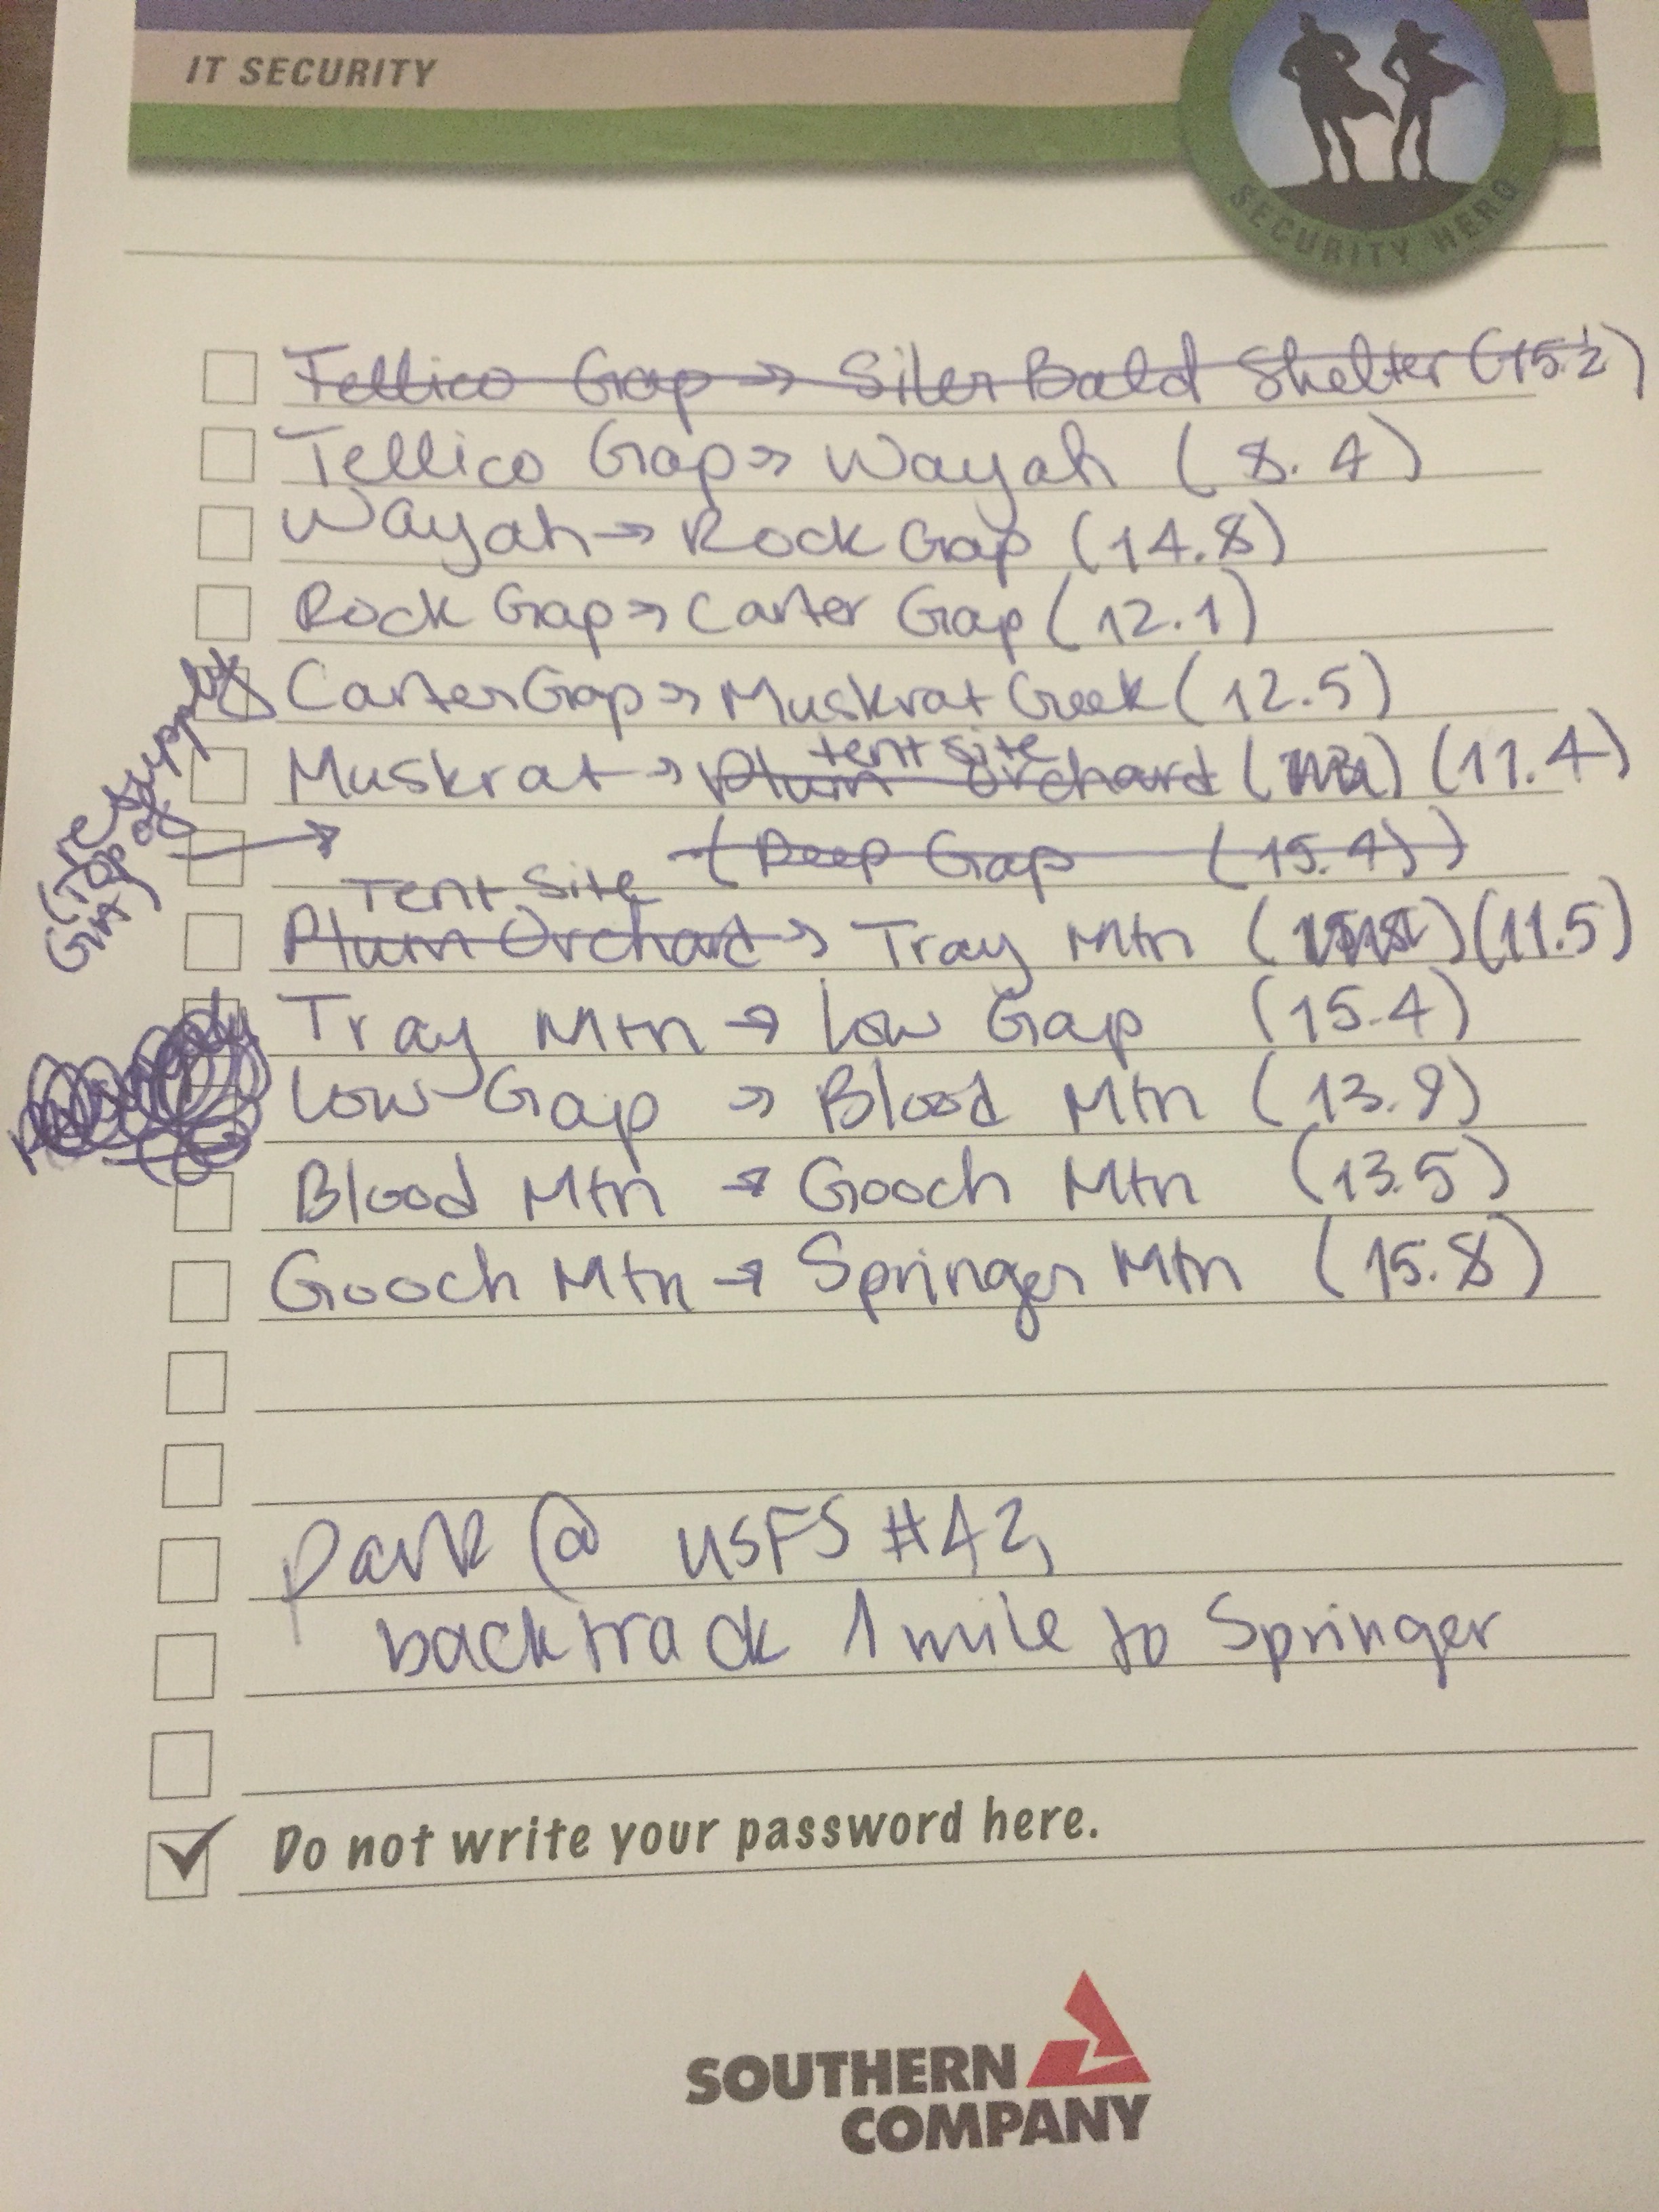 IT SECURITY
SECURITY HERO
Tellico Gap → Siler Bald Shelter (15.2)
Tellico Gap → Wayah (8.4)
Wayah → Rock Gap (14.8)
Rock Gap → Carter Gap (12.1)
Carter Gap → Muskrat Creek (12.5)
tent site
Muskrat → Plum Orchard (11.4)
resupply
(top of
GA)
→ (Deep Gap (15.4))
Tent Site
Plum Orchard → Tray Mtn (11.5)
Tray Mtn → Low Gap (15.4)
Low Gap → Blood Mtn (13.9)
Blood Mtn → Gooch Mtn (13.5)
Gooch Mtn → Springer Mtn (15.8)
Park @ USFS #42,
backtrack 1 mile to Springer
Do not write your password here.
SOUTHERN
COMPANY